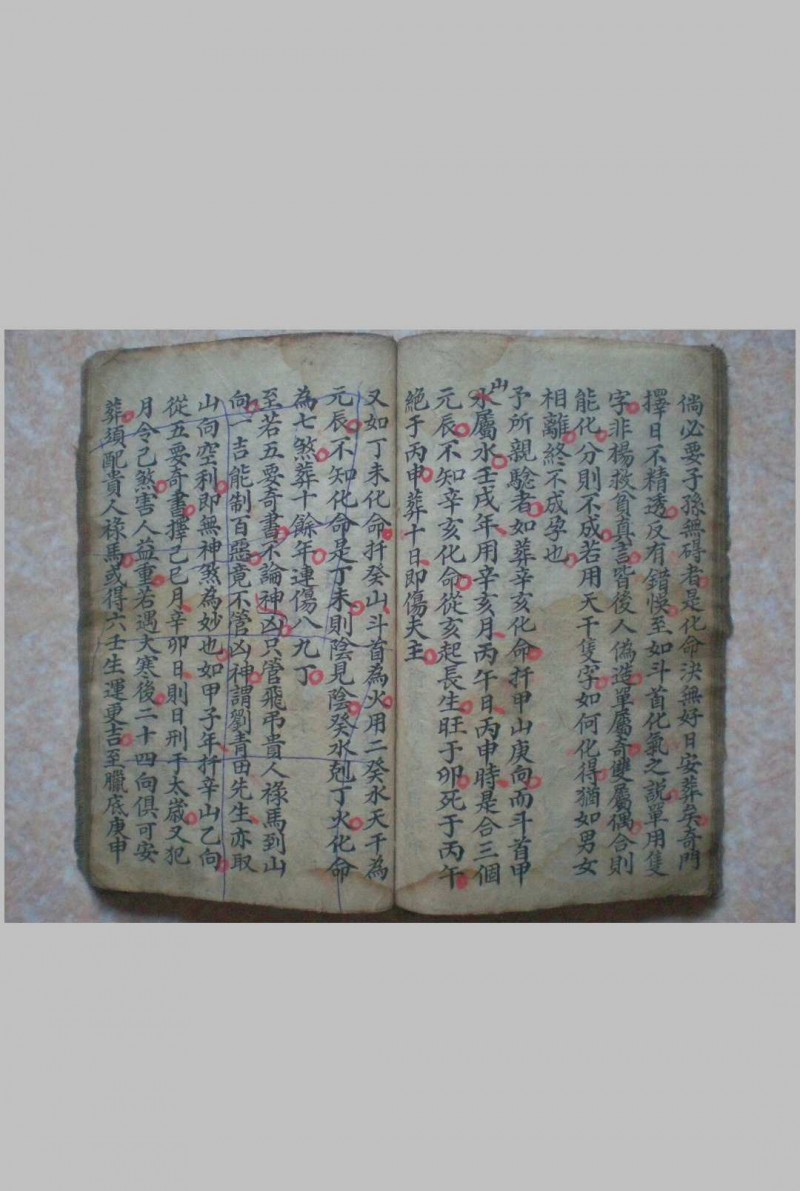 倘必要子孫無碍者是化命決無好日安葬矣奇門
擇日不精透反有錯悮至如斗首化氣之說單用隻
字非楊救貧真言皆後人偽造單屬奇雙屬偶合則
能化分則不成若用天干隻字如何化得猶如男女
相離終不成孕也
予所親驗者如葬辛亥化命扦甲山庚向而斗首甲
山
水屬水壬戌年用辛亥月丙午日丙申時是合三個
元辰不知辛亥化命從亥起長生旺于卯死于丙午
絕于丙申葬十日即傷夫主
又如丁未化命扦癸山斗首為火用二癸水天干為
元辰不知化命是丁未則陰見陰癸水剋丁火化命
為七煞葬十餘年連傷八九丁
至若五要奇書不論神凶只管飛弔貴人祿馬到山
向一吉能制百惡竟不管凶神謂劉青田先生亦取
山向空利即無神煞為妙也如甲子年扦辛山乙向
從五要奇書擇己巳月辛卯日則日刑于太歲又犯
月令己煞害人益重若遇大寒後二十四向俱可安
葬須配貴人祿馬或得六壬生運更吉至臘底庚申